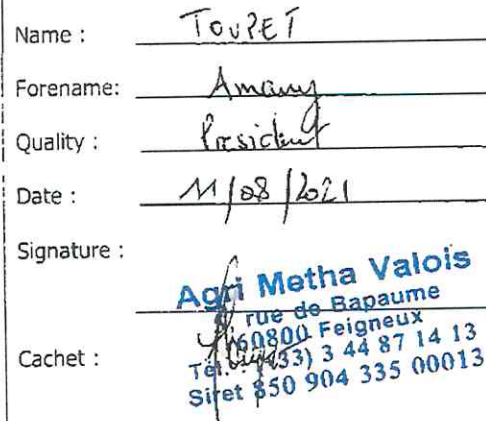 Name : TOUPET
Forename: Amaury
Quality : President
Date : 11/08/2021
Signature :
Agri Metha Valois
rue de Bapaume
60800 Feigneux
Cachet :
Tél. : (33) 3 44 87 14 13
Siret 850 904 335 00013